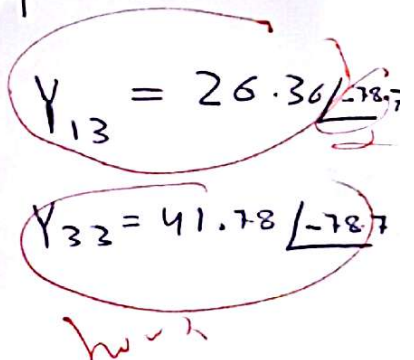 Y₁₃ = 26.36 ∠-78.7
Y₃₃ = 41.78 ∠-78.7